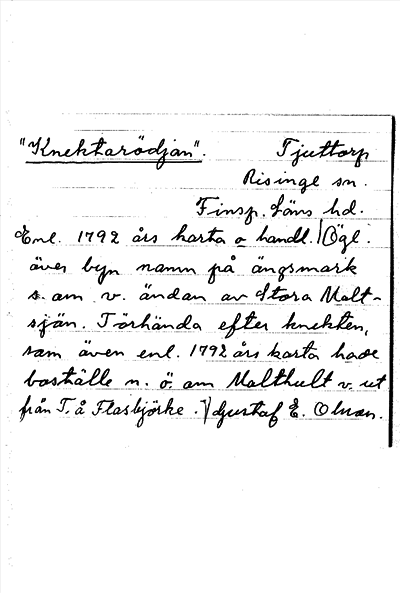 "Knektarödjan". Tjuttorp
Risinge sn.
Finsp. Läns hd.
Enl. 1792 års karta o handl. Ögl.
över byn namn på ängsmark
s. om v. ändan av Stora Malt-
sjön. Törhända efter knekten,
som även enl. 1792 års karta hade
boställe n. ö. om Malthult v. ut
från T. å Flasbjörke. Gustaf E. Olson.